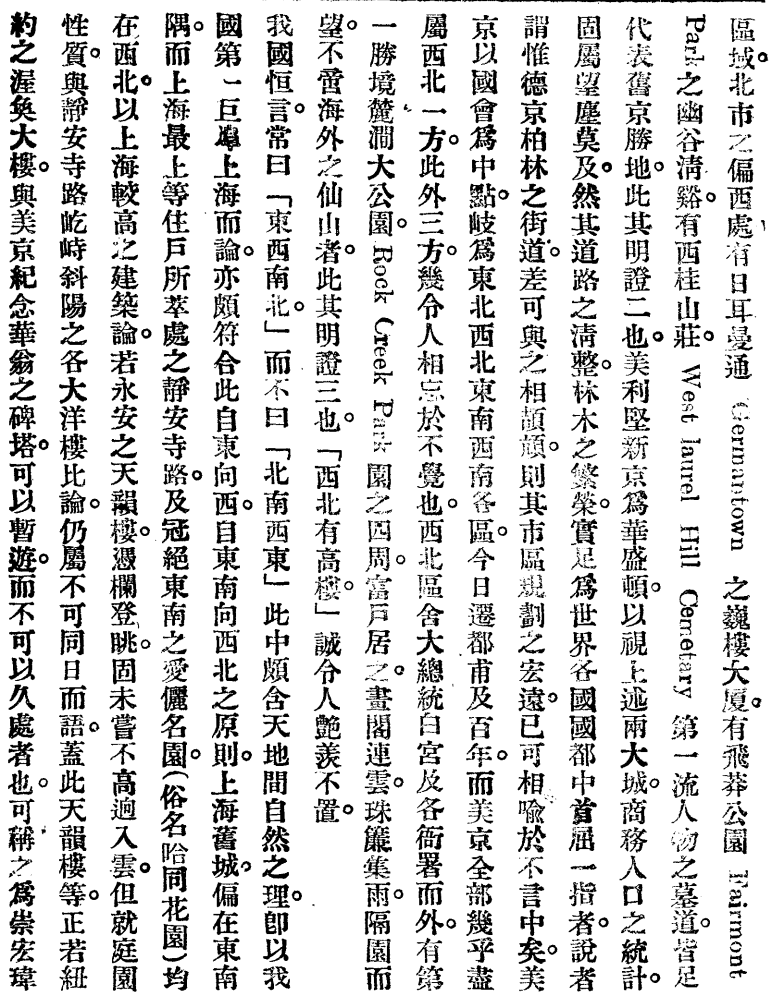 區域。北市之偏西處有日耳曼通 Germantown 之巍樓大厦。有飛莽公園 Fairmont
Park 之幽谷清谿。有西桂山莊。West laurel Hill Cemetary 第一流人物之墓道。皆足
代表舊京勝地。此其明證二也。美利堅新京爲華盛頓。以視上述兩大城。商務人口之統計。
固屬望塵莫及。然其道路之清整。林木之繁榮。實足爲世界各國國都中首屈一指者。說者
謂惟德京柏林之街道。差可與之相頡頏。則其市區規劃之宏遠。已可相喻於不言中矣。美
京以國會爲中點。岐爲東北西北東南西南各區。今日遷都甫及百年。而美京全部幾乎盡
屬西北一方。此外三方。幾令人相忘於不覺也。西北區舍大總統白宮及各衙署而外。有第
一勝境麓澗大公園。Rock Creek Park 園之四周。富戶居之。畫閣連雲。珠簾集雨。隔園而
望。不啻海外之仙山者。此其明證三也。「西北有高樓」誠令人艷羨不置。
我國恒言。常曰「東西南北。」而不曰「北南西東」此中頗含天地間自然之理。卽以我
國第一巨埠上海而論。亦頗符合此自東向西。自東南向西北之原則。上海舊城。偏在東南
隅。而上海最上等住戶所萃處之靜安寺路。及冠絕東南之愛儷名園（俗名哈同花園）均
在西北。以上海較高之建築論。若永安之天韻樓。憑欄登眺。固未嘗不高逈入雲。但就庭園
性質。與靜安寺路屹峙斜陽之各大洋樓比論。仍屬不可同日而語。蓋此天韻樓等。正若紐
約之渥奐大樓。與美京紀念華翁之碑塔。可以暫遊。而不可以久處者也。可稱之爲崇宏瑋